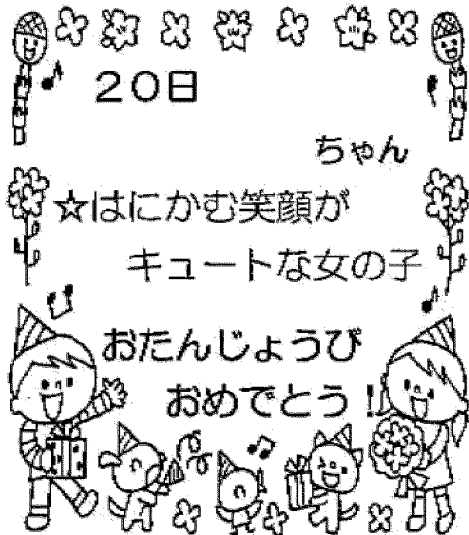 20日
ちゃん
☆はにかむ笑顔が
キュートな女の子
おたんじょうび
おめでとう!